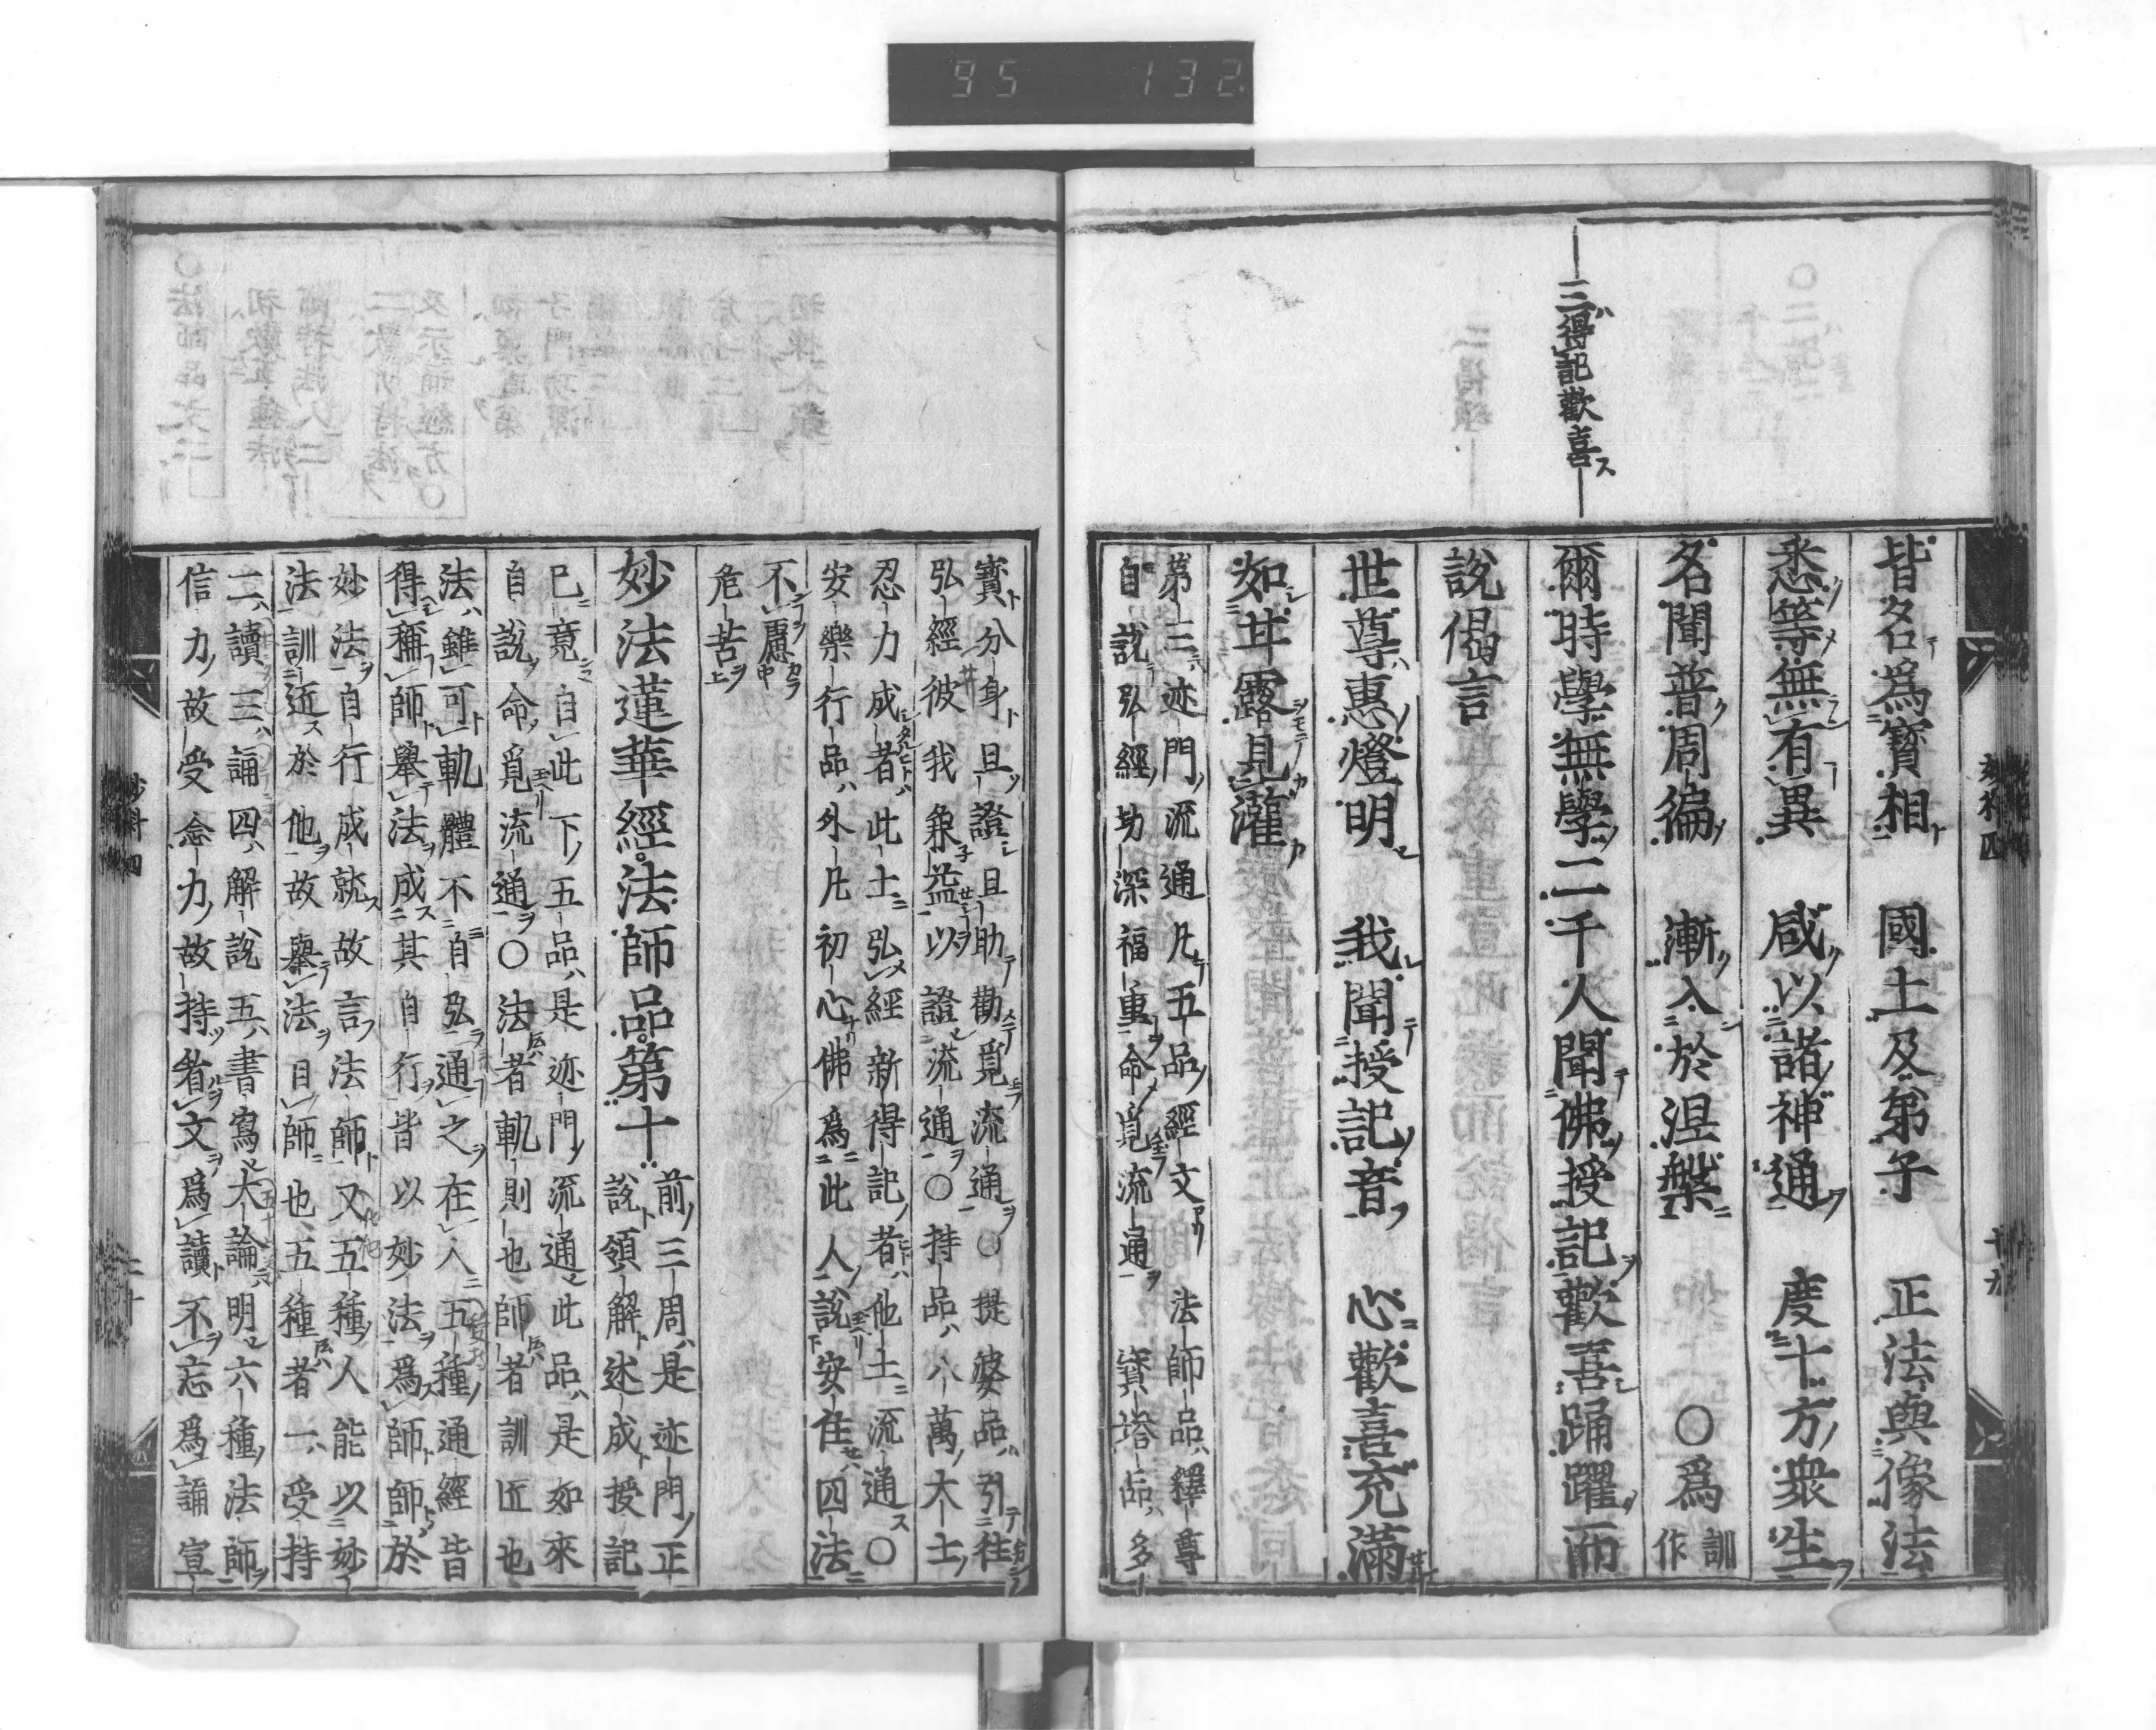 95 132
三得記歡喜
皆名爲寶相 國土及弟子 正法與像法
悉等無有異 咸以諸神通 度十方衆生
名聞普周徧 漸入於涅槃 〇爲訓作
爾時學無學二千人聞佛授記歡喜踊躍而
說偈言
世尊惠燈明 我聞授記音 心歡喜充滿
如甘露見灌
第三迹門流通凡五品經文 法師品釋尊
自說弘經功深福重命覓流通 寶塔品多
寶分身且證且助勸覓流通〇提婆品引往
弘經彼我兼益以證流通〇持品八萬大士
忍力成者此土弘經新得記者他土流通〇
安樂行品外凡初心佛爲此人說安住四法
不慮
危苦
妙法蓮華經法師品第十
前三周是迹門正
說領解述成授記
已竟自此下五品是迹門流通此品是如來
自說命覓流通〇法者軌則也師者訓匠也
法雖可軌體不自弘通之在人五種通經皆
得稱師舉法成其自行皆以妙法爲師師於
妙法自行成就故言法師又五種人能以妙
法訓近於他故舉法目師也五種者一受持
二讀三誦四解說五書寫大論明六種法師
信力故受念力故持看文爲讀不忘爲誦宣
二十